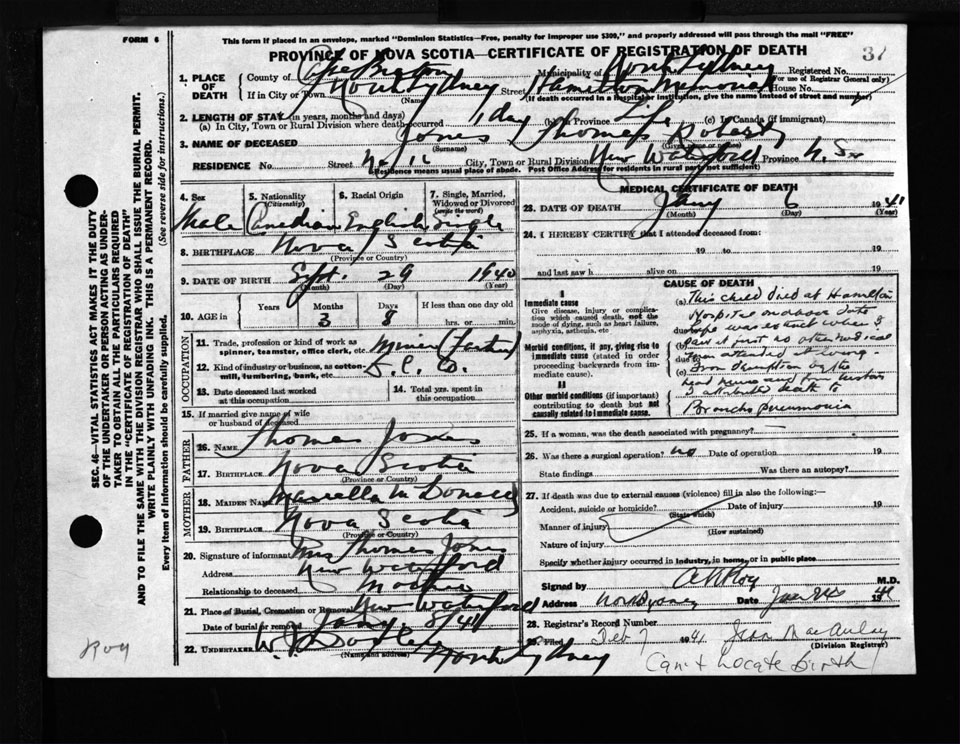 FORM 6
This form if placed in an envelope, marked "Dominion Statistics—Free, penalty for improper use $300," and properly addressed will pass through the mail "FREE"
PROVINCE OF NOVA SCOTIA—CERTIFICATE OF REGISTRATION OF DEATH
31
1. PLACE OF DEATH County of Cape Breton Municipality of North Sydney Registered No.
(For use of Registrar General only)
If in City or Town North Sydney Street Hamilton Memorial House No.
(Name) (If death occurred in a hospital or institution, give the name instead of street and number)
2. LENGTH OF STAY (in years, months and days)
(a) In City, Town or Rural Division where death occurred 1 day (b) in Province Life (c) In Canada (if immigrant)
3. NAME OF DECEASED Jones Thomas Robert
(Surname)
RESIDENCE No. Street No 12 City, Town or Rural Division New Waterford Province N.S.
(Residence means usual place of abode. Post Office Address for residents in rural part not sufficient)
4. Sex 5. Nationality (Citizenship) 6. Racial Origin 7. Single, Married, Widowed or Divorced (write the word)
Male Canadian English Single
8. BIRTHPLACE Nova Scotia
(Province or Country)
9. DATE OF BIRTH Sept. 29 1940
(Month) (Day) (Year)
10. AGE in Years Months Days If less than one day old
3 8 hrs. or min.
OCCUPATION
11. Trade, profession or kind of work as spinner, teamster, office clerk, etc. Miner (Father)
12. Kind of industry or business, as cotton-mill, lumbering, bank, etc. D. C. Co.
13. Date deceased last worked at this occupation 14. Total yrs. spent in this occupation
15. If married give name of wife or husband of deceased
FATHER
16. NAME Thomas Jones
17. BIRTHPLACE Nova Scotia
(Province or Country)
MOTHER
18. MAIDEN NAME
19. BIRTHPLACE Nova Scotia
(Province or Country)
20. Signature of informant Mrs Thomas Jones
Address New Waterford
Relationship to deceased Mother
21. Place of Burial, Cremation or Removal New Waterford
Date of burial or removal Jany 8/41
22. UNDERTAKER North Sydney
(Name and address)
MEDICAL CERTIFICATE OF DEATH
23. DATE OF DEATH Jany 6 1941
(Month) (Day) (Year)
24. I HEREBY CERTIFY that I attended deceased from:
19 to 19
and last saw h alive on 19
CAUSE OF DEATH
I
Immediate cause
Give disease, injury or complication which caused death, not the mode of dying, such as heart failure, asphyxia, asthenia, etc
Morbid conditions, if any, giving rise to immediate cause (stated in order proceeding backwards from immediate cause).
II
Other morbid conditions (if important) contributing to death but not causally related to immediate cause.
(a) This child died at Hamilton
Hospital on above date
due to
(b)
due to
(c)
Broncho pneumonia
25. If a woman, was the death associated with pregnancy?
26. Was there a surgical operation? no Date of operation 19
State findings Was there an autopsy?
27. If death was due to external causes (violence) fill in also the following:
Accident, suicide or homicide? Date of injury 19
(State which)
Manner of injury
(How sustained)
Nature of injury
Specify whether injury occurred in industry, in home, or in public place
Signed by M.D.
Address North Sydney Date 1941
28. Registrar's Record Number
29. Filed Feb 7 1941 Jean MacAulay
(Division Registrar)
Can't locate birth
Roy
SEC. 46—VITAL STATISTICS ACT MAKES IT THE DUTY
OF THE UNDERTAKER OR PERSON ACTING AS UNDER-
TAKER TO OBTAIN ALL THE PARTICULARS REQUIRED
IN THE "CERTIFICATE OF REGISTRATION OF DEATH"
AND TO FILE THE SAME WITH THE DIVISION REGISTRAR WHO SHALL ISSUE THE BURIAL PERMIT.
WRITE PLAINLY WITH UNFADING INK. THIS IS A PERMANENT RECORD.
Every item of information should be carefully supplied. (See reverse side for instructions.)